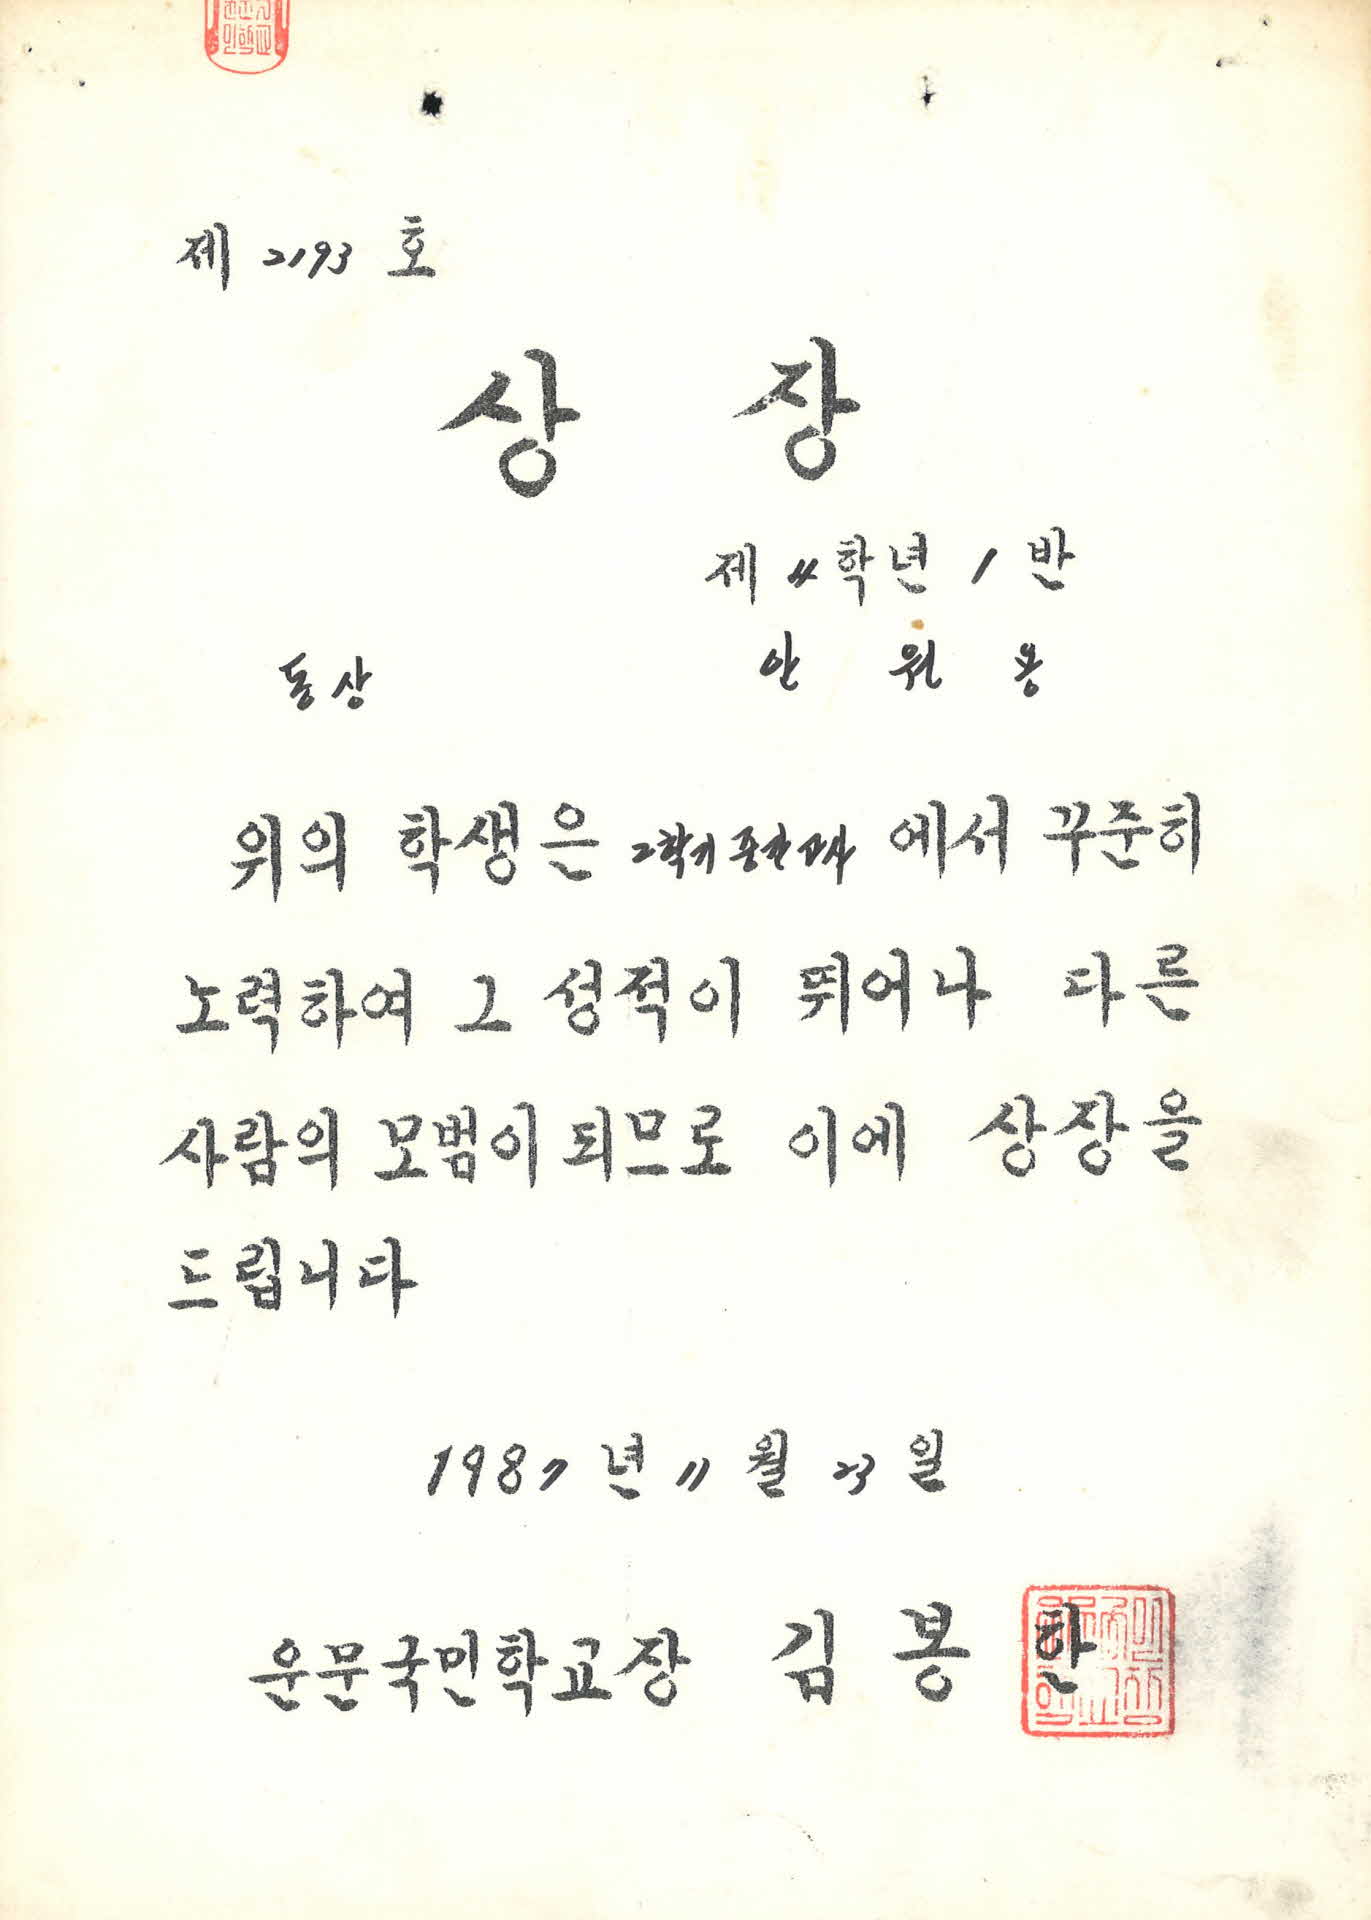 제 2193 호
상 장
제 4 학년 1 반
동상 안 원 용
위의 학생은 2학기 중간고사 에서 꾸준히
노력하여 그 성적이 뛰어나 다른
사람의 모범이 되므로 이에 상장을
드립니다
1987 년 11 월 23 일
운문국민학교장 김 봉 한